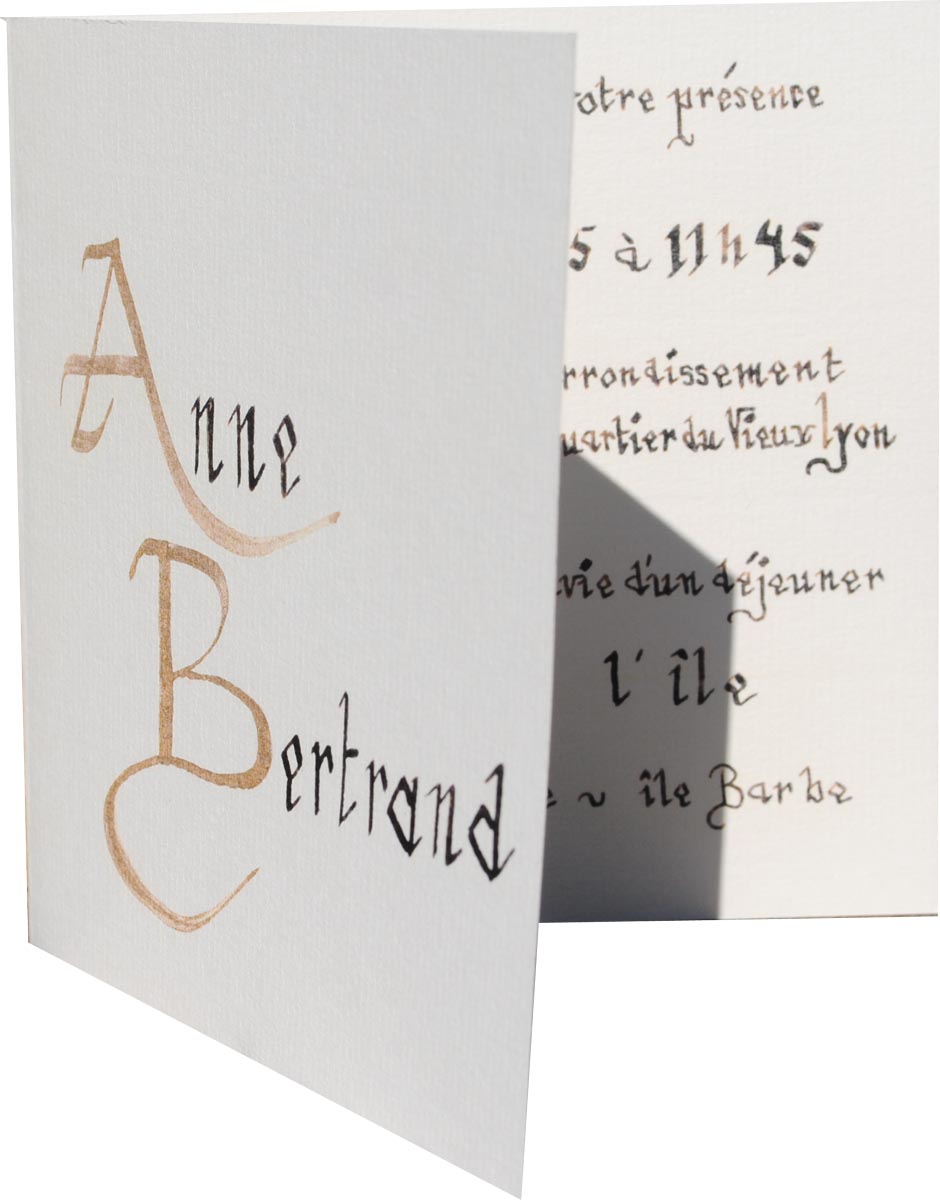 Anne
Bertrand
otre présence
5 à 11h45
rrondissement
uartier du Vieux Lyon
vie d'un déjeuner
l'île
e ~ île Barbe